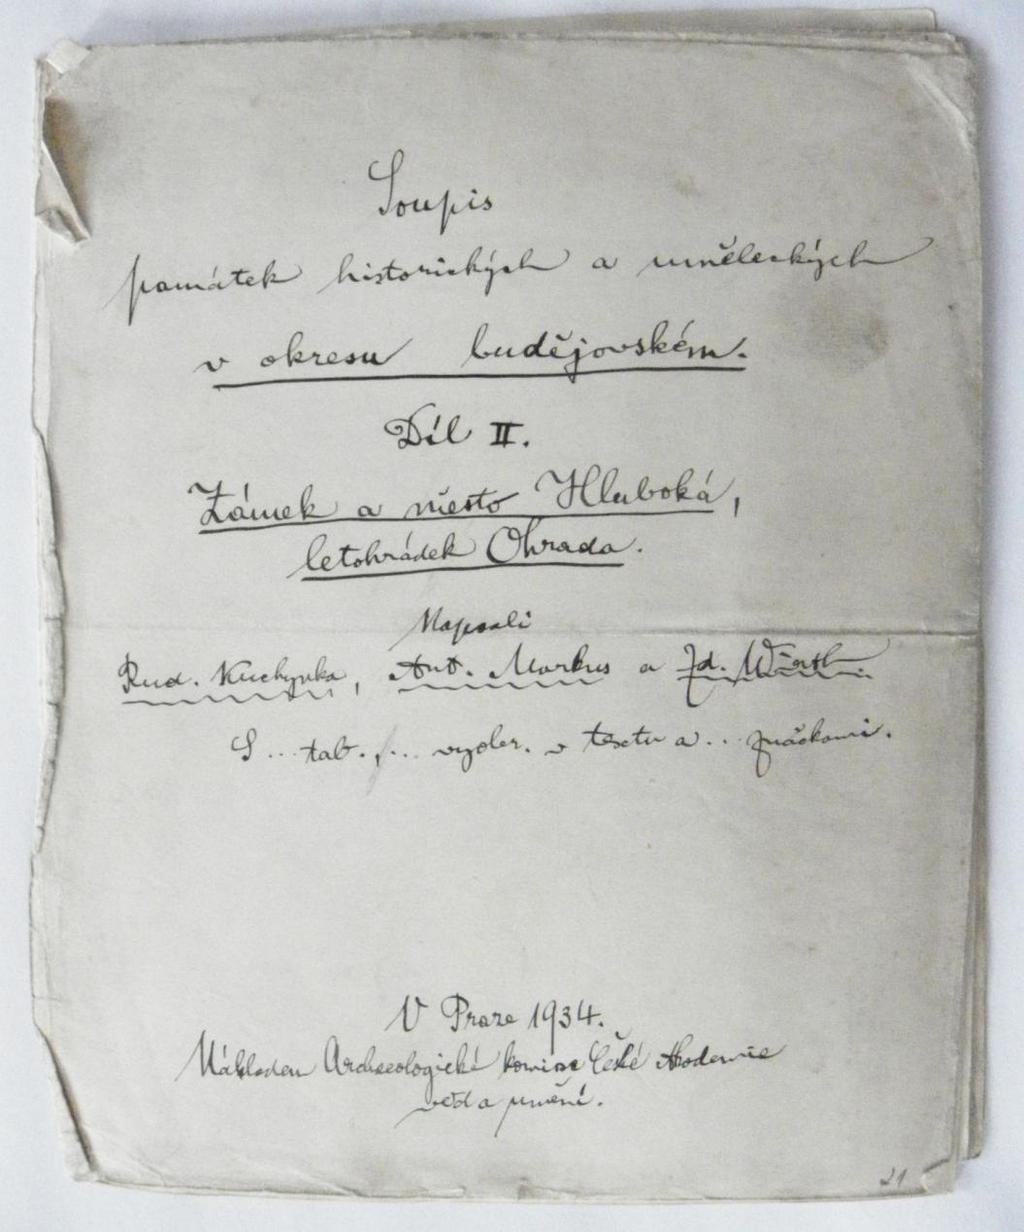 Soupis
památek historických a uměleckých
v okresu budějovském.
Díl II.
Zámek a město Hluboká,
letohrádek Ohrada.
Napsali
Rud. Kuchynka, Ant. Markus a Zd. Wirth.
S... tab., ... vyobr. v textu a .. značkami.
V Praze 1934.
Nákladem Archaeologické komise České Akademie
věd a umění.
21